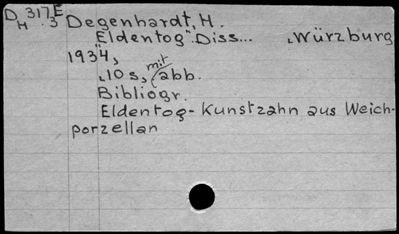 D 317 E Degenhardt, H.
H .3
"Eldentog". Diss... „Würzburg
1934,
„10 s, mit abb.
Bibliogr.
Eldentog-Kunstzahn aus Weich-
porzellan